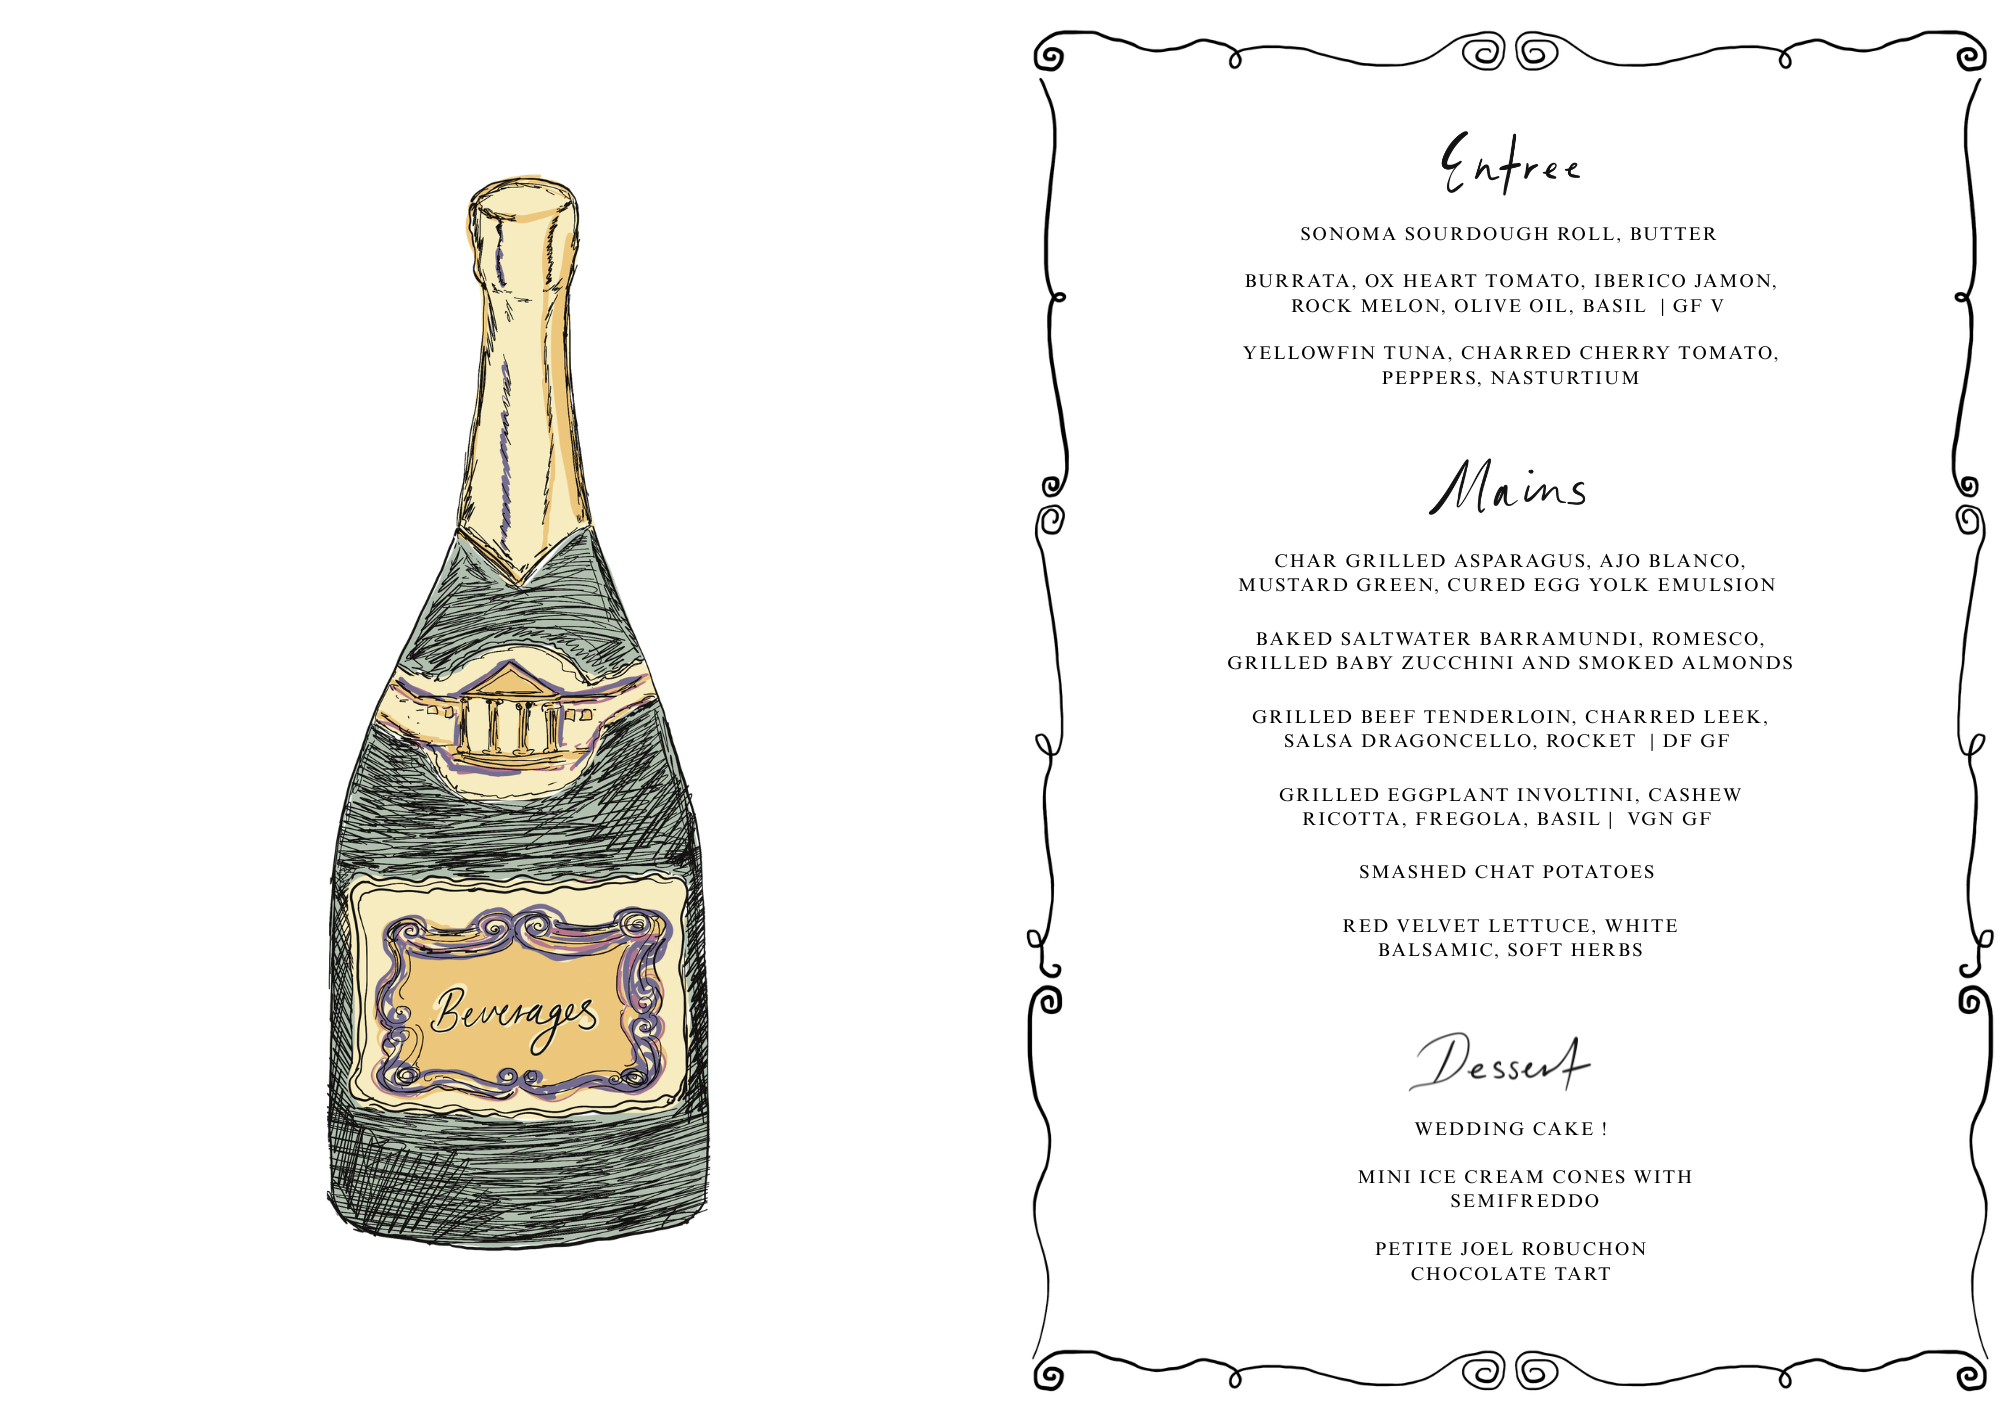 Beverages
Entree
SONOMA SOURDOUGH ROLL, BUTTER
BURRATA, OX HEART TOMATO, IBERICO JAMON,
ROCK MELON, OLIVE OIL, BASIL | GF V
YELLOWFIN TUNA, CHARRED CHERRY TOMATO,
PEPPERS, NASTURTIUM
Mains
CHAR GRILLED ASPARAGUS, AJO BLANCO,
MUSTARD GREEN, CURED EGG YOLK EMULSION
BAKED SALTWATER BARRAMUNDI, ROMESCO,
GRILLED BABY ZUCCHINI AND SMOKED ALMONDS
GRILLED BEEF TENDERLOIN, CHARRED LEEK,
SALSA DRAGONCELLO, ROCKET | DF GF
GRILLED EGGPLANT INVOLTINI, CASHEW
RICOTTA, FREGOLA, BASIL | VGN GF
SMASHED CHAT POTATOES
RED VELVET LETTUCE, WHITE
BALSAMIC, SOFT HERBS
Dessert
WEDDING CAKE !
MINI ICE CREAM CONES WITH
SEMIFREDDO
PETITE JOEL ROBUCHON
CHOCOLATE TART